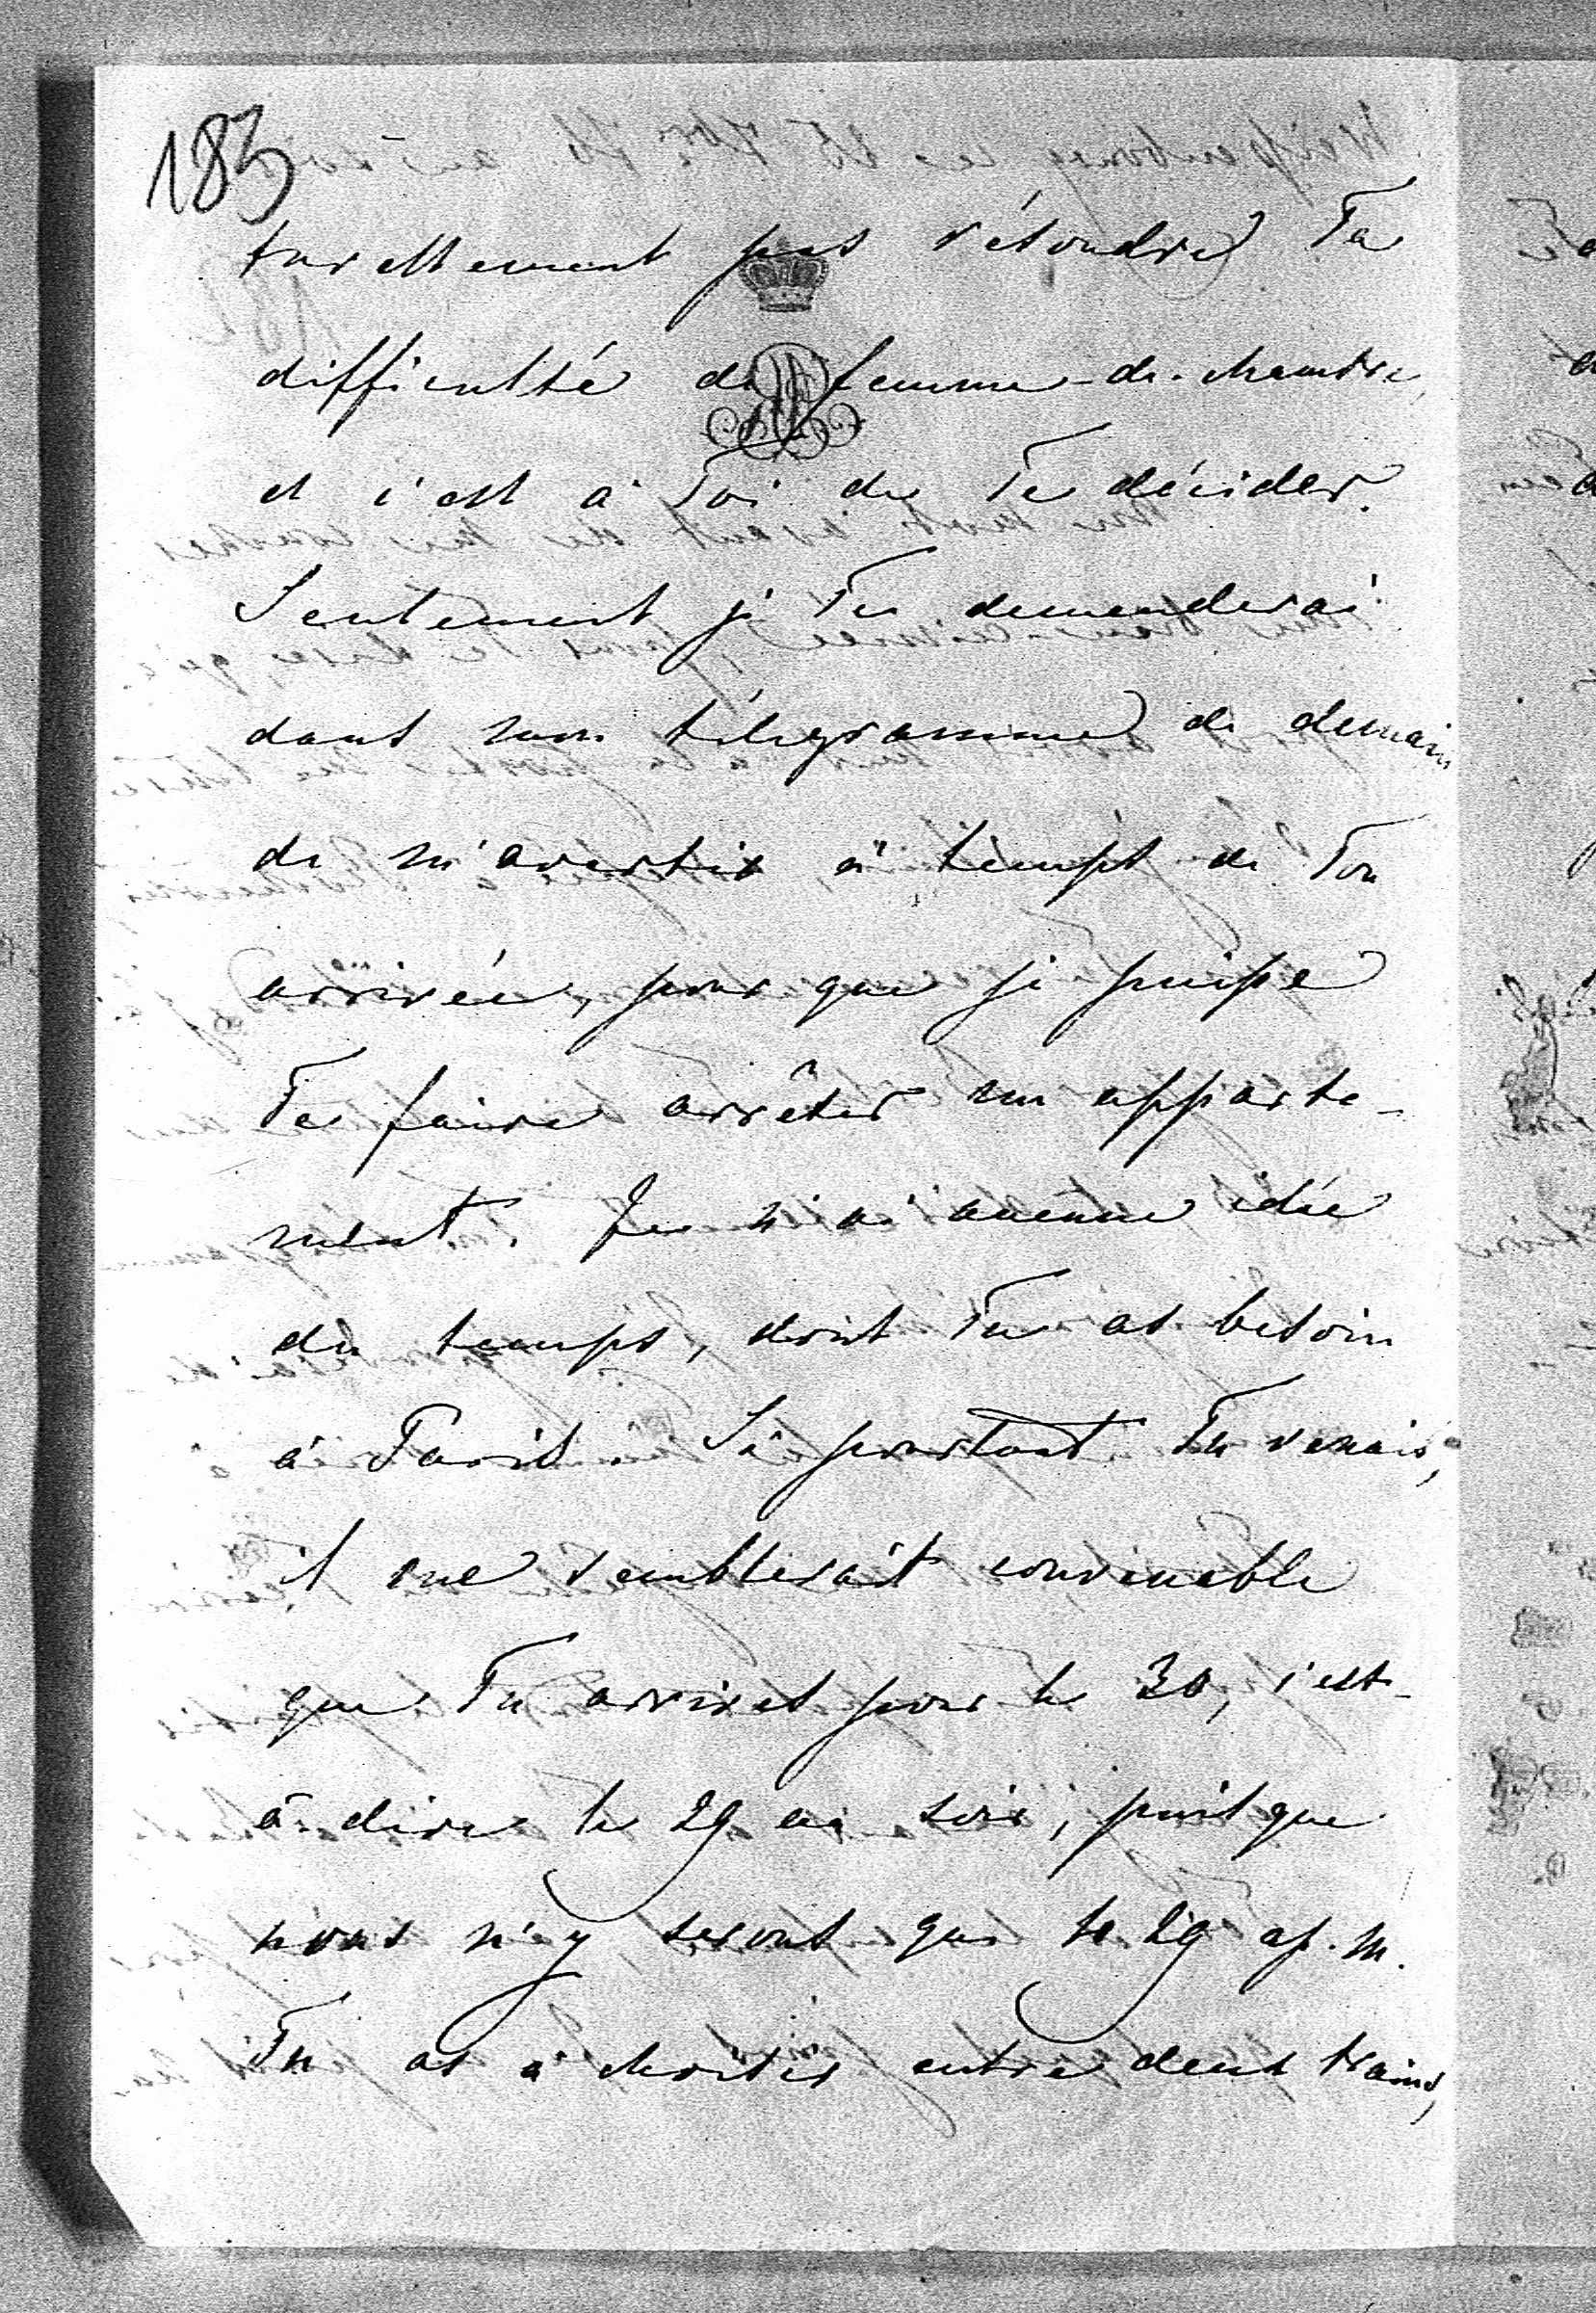 183
turellement pas résoudre Ta
difficulté de femme-de-chambre,
et c'est à Toi de Te décider.
Seulement je Te demanderai
dans mon télégramme de demain
de m'avertir à temps de Ton
arrivée, pour que je puisse
Te faire arrêter un apparte-
ment. Je n'ai aucune idée
du temps, dont Tu as besoin
à Paris. Si pourtant Tu venais,
il me semblerait convenable
que Tu arrives pour le 30, c'est-
à-dire le 29 au soir, puisque
nous n'y serons que le 29 ap. m.
Tu as à choisir entre deux trains,